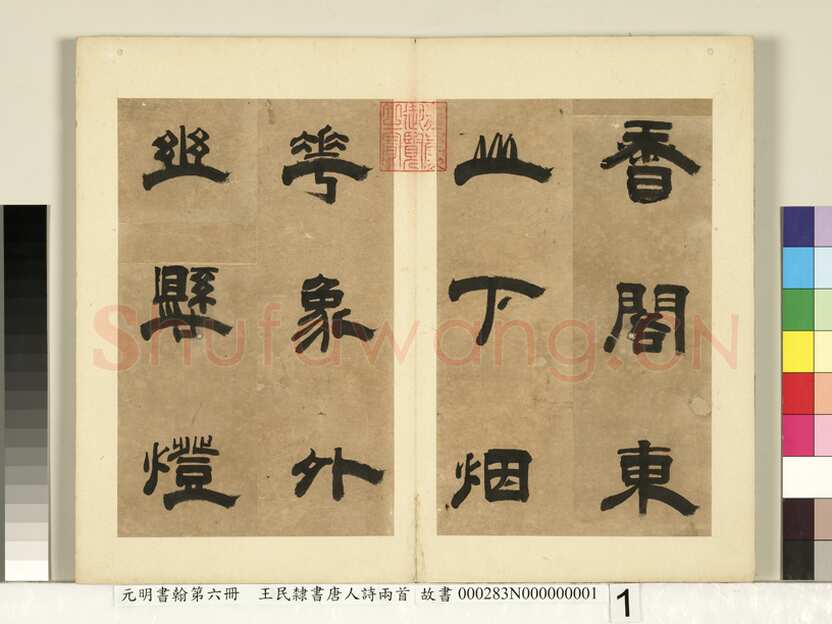 香閣東
山下烟
華象外
幽懸燈
Shufawang.CN
元明書翰第六冊 王民隸書唐人詩兩首 故書 000283N000000001 1